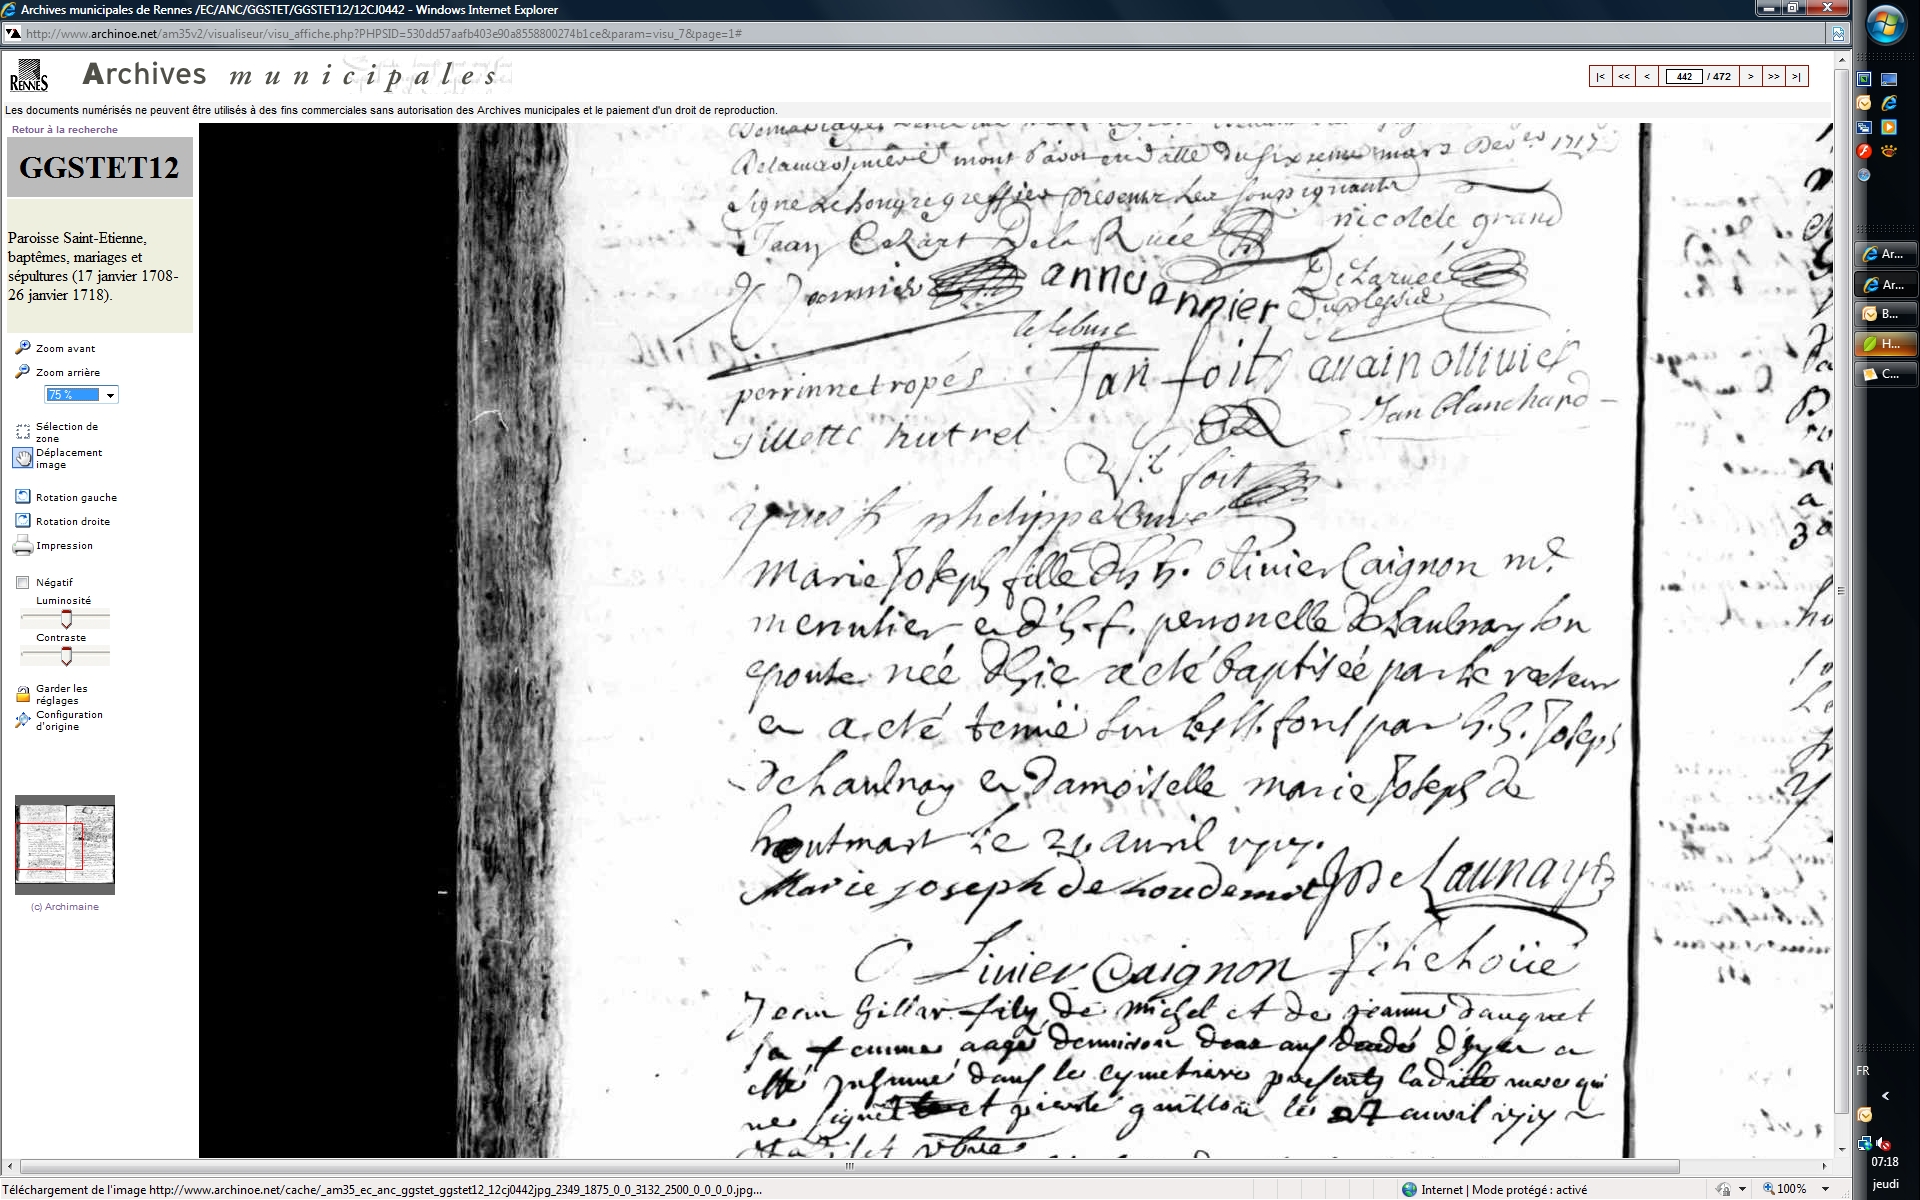 Archives municipales de Rennes /EC/ANC/GGSTET/GGSTET12/12CJ0442 - Windows Internet Explorer
http://www.archinoe.net/am35v2/visualiseur/visu_affiche.php?PHPSID=530dd57aafb403e90a8558800274b1ce&param=visu_7&page=1#
RENNES
Archives municipales
|< << < 442 / 472 > >> >|
Les documents numérisés ne peuvent être utilisés à des fins commerciales sans autorisation des Archives municipales et le paiement d'un droit de reproduction.
Retour à la recherche
GGSTET12
Paroisse Saint-Etienne,
baptêmes, mariages et
sépultures (17 janvier 1708-
26 janvier 1718).
Zoom avant
Zoom arrière
75 %
Sélection de
zone
Déplacement
image
Rotation gauche
Rotation droite
Impression
Négatif
Luminosité
Contraste
Garder les
réglages
Configuration
d'origine
(c) Archimaine
mont davot en datte du sixieme mars 1717
signe greffier presents les soussignants
Jean De la Ruée nicole le grand
annu annier De Laruée
lefebure Duplessix
perrinne tropés Jan foit allain ollivier
Gillette hutrel Jan blanchard
foit
phelippe
marie Joseph fille d'h h. olivier Caignon mr.
menusier et d'h. f. peronelle de Laulnay son
epouse née d'hier a esté baptisée par le recteur
et a esté tenue sur les sts. fons par h. h. Joseph
de Laulnay et damoiselle marie Joseph de
houtmart le 21. avril 1717.
Marie joseph de houdemot J De Launay
Olivier Caignon
Jean Gillar fily de michel et de jeanne dauguet
sa femme aagé denviron deux ans decedé d'hyer a
esté inhumé dans le cymetiere presents laditte mere qui
ne signe et pierre guillou le 27 avril 1717
Ar...
Ar...
B...
H...
C...
FR
07:18
jeudi
Téléchargement de l'image http://www.archinoe.net/cache/_am35_ec_anc_ggstet_ggstet12_12cj0442jpg_2349_1875_0_0_3132_2500_0_0_0_0.jpg...
Internet | Mode protégé : activé
100%